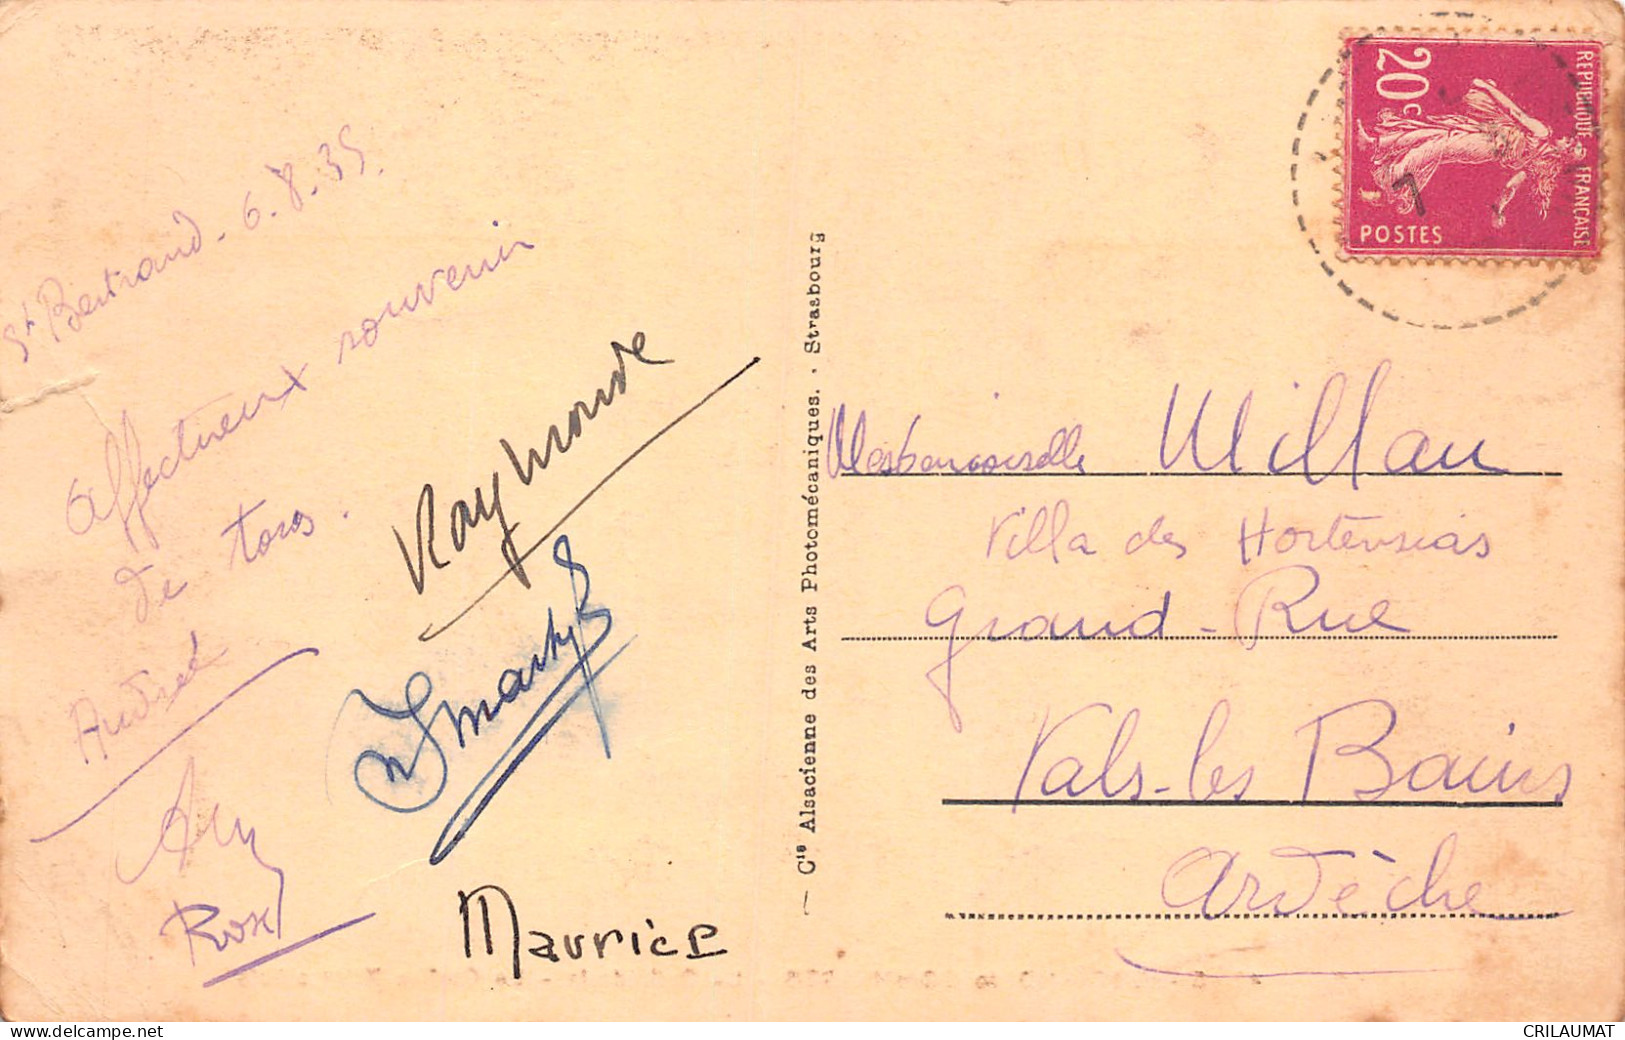 St Bertrand - 6.8.35.
affectueux souvenir
de tous.
Raymonde
Andrée
Rose
Maurice
— Cie Alsacienne des Arts Photomécaniques. - Strasbourg
REPUBLIQUE FRANÇAISE
20c
POSTES
7
Mesdemoiselle Millau
Villa des Hortensias
Grand-Rue
Vals-les Bains
Ardèche
www.delcampe.net
CRILAUMAT